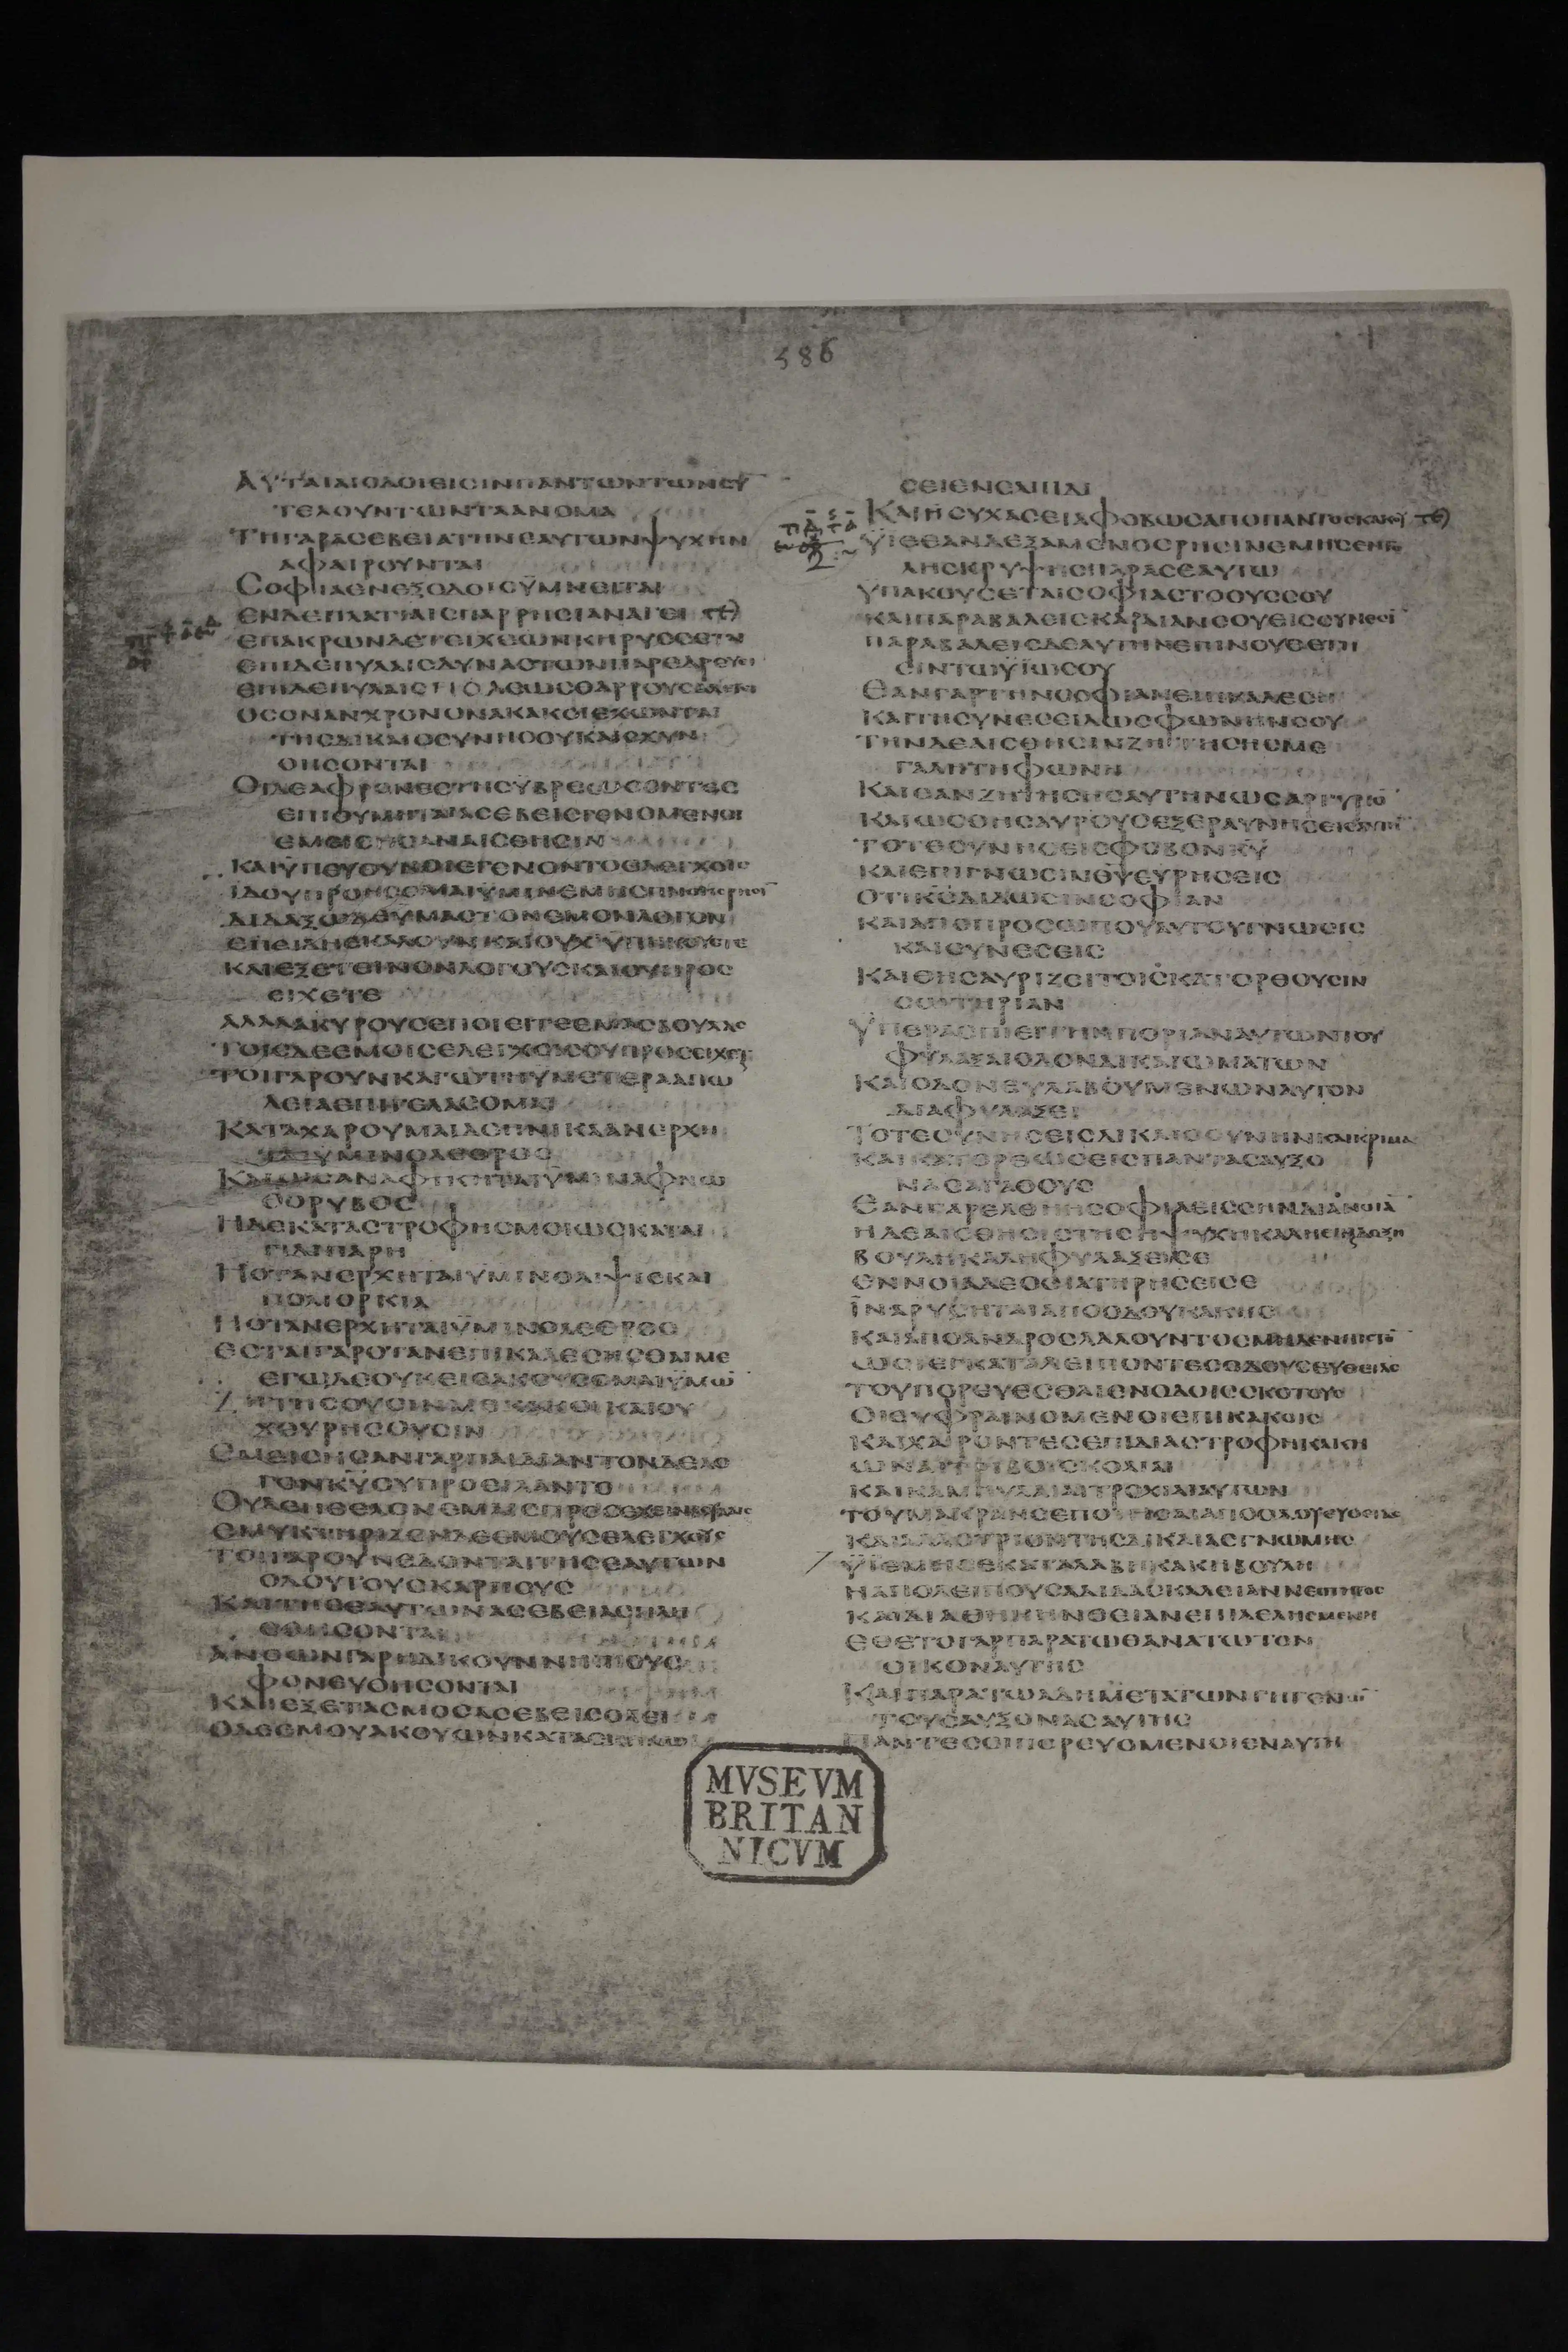 586
ΑΥΤΑΙΑΙΟΔΟΙΕΙCΙΝΠΑΝΤΩΝΤΩΝCΥ̅
ΤΕΛΟΥΝΤΩΝΤΑΑΝΟΜΑ
ΤΗΓΑΡΑCΕΒΕΙΑΤΗΝΕΑΥΤΩΝΨΥΧΗΝ
ΑΦΑΙΡΟΥΝΤΑΙ
CΟΦΙΑΕΝΕΞΟΔΟΙCΫΜΝΕΙΤΑΙ
ΕΝΔΕΠΛΑΤΙΑΙCΠΑΡΡΗCΙΑΝΑΓΕΙ
ΕΠΑΚΡΩΝΔΕΤΕΙΧΕΩΝΚΗΡΥCCΕΤΑΙ
ΕΠΙΔΕΠΥΛΑΙCΔΥΝΑCΤΩΝΠΑΡΕΔΡΕΥΕΙ
ΕΠΙΔΕΠΥΛΑΙCΠΟΛΕΩCΘΑΡΡΟΥCΑΛΕΓΕΙ
ΟCΟΝΑΝΧΡΟΝΟΝΑΚΑΚΟΙΕΧΩΝΤΑΙ
ΤΗCΔΙΚΑΙΟCΥΝΗCΟΥΚΑΙCΧΥΝ
ΘΗCΟΝΤΑΙ
ΟΙΔΕΑΦΡΟΝΕCΤΗCΫΒΡΕΩCΟΝΤΕC
ΕΠΙΘΥΜΗΤΑΙΑCΕΒΕΙCΓΕΝΟΜΕΝΟΙ
ΕΜΕΙCΗCΑΝΑΙCΘΗCΙΝ
ΚΑΙΫΠΕΥΘΥΝΟΙΕΓΕΝΟΝΤΟΕΛΕΓΧΟΙC
ΪΔΟΥΠΡΟΗCΟΜΑΙΫΜΙΝΕΜΗCΠΝΟΗCΡΗCΙ̅
ΔΙΔΑΞΩΔΕΫΜΑCΤΟΝΕΜΟΝΛΟΓΟΝ
ΕΠΕΙΔΗΕΚΑΛΟΥΝΚΑΙΟΥΧΫΠΗΚΟΥCΑΤΕ
ΚΑΙΕΞΕΤΕΙΝΟΝΛΟΓΟΥCΚΑΙΟΥΠΡΟC
ΕΙΧΕΤΕ
ΑΛΛΑΑΚΥΡΟΥCΕΠΟΙΕΙΤΕΕΜΑCΒΟΥΛΑC
ΤΟΙCΔΕΕΜΟΙCΕΛΕΓΧΟΙCΟΥΠΡΟCΕΙΧΕΤΕ
ΤΟΙΓΑΡΟΥΝΚΑΓΩΤΗΫΜΕΤΕΡΑΑΠΩ
ΛΕΙΑΕΠΙΓΕΛΑCΟΜΑΙ
ΚΑΤΑΧΑΡΟΥΜΑΙΔΕΗΝΙΚΑΑΝΕΡΧΗ
ΤΑΙΫΜΙΝΟΛΕΘΡΟC
ΚΑΙΩCΑΝΑΦΙΚΗΤΑΙΫΜΙΝΑΦΝΩ
ΘΟΡΥΒΟC
ΗΔΕΚΑΤΑCΤΡΟΦΗΟΜΟΙΩCΚΑΤΑΙ
ΓΙΔΙΠΑΡΗ
ΗΟΤΑΝΕΡΧΗΤΑΙΫΜΙΝΘΛΙΨΙCΚΑΙ
ΠΟΛΙΟΡΚΙΑ
ΗΟΤΑΝΕΡΧΗΤΑΙΫΜΙΝΟΛΕΘΡΟC
ΕCΤΑΙΓΑΡΟΤΑΝΕΠΙΚΑΛΕCΗCΘΑΙΜΕ
ΕΓΩΔΕΟΥΚΕΙCΑΚΟΥCΟΜΑΙΫΜΩ̅
ΖΗΤΗCΟΥCΙΝΜΕΚΑΚΟΙΚΑΙΟΥ
ΧΕΥΡΗCΟΥCΙΝ
ΕΜΕΙCΗCΑΝΓΑΡΠΑΙΔΙΑΝΤΟΝΔΕΛΟ
ΓΟΝΚΥ̅ΟΥΠΡΟΕΙΛΑΝΤΟ
ΟΥΔΕΗΘΕΛΟΝΕΜΑΙCΠΡΟCΕΧΕΙΝΒΟΥΛΑΙC
ΕΜΥΚΤΗΡΙΖΟΝΔΕΕΜΟΥCΕΛΕΓΧΟΥC
ΤΟΙΓΑΡΟΥΝΕΔΟΝΤΑΙΤΗCΕΑΥΤΩΝ
ΟΔΟΥΤΟΥCΚΑΡΠΟΥC
ΚΑΙΤΗCΕΑΥΤΩΝΑCΕΒΕΙΑCΠΛΗ
CΘΗCΟΝΤΑΙ
ΑΝΘΩΝΓΑΡΗΔΙΚΟΥΝΝΗΠΙΟΥC
ΦΟΝΕΥΘΗCΟΝΤΑΙ
ΚΑΙΕΞΕΤΑCΜΟCΑCΕΒΕΙCΟΛΕΙ
ΟΔΕΕΜΟΥΑΚΟΥΩΝΚΑΤΑCΚΗΝΩ
CΕΙΕΝΕΛΠΙΔΙ
ΚΑΙΗCΥΧΑCΕΙΑΦΟΒΩCΑΠΟΠΑΝΤΟCΚΑΚΟΥ
ΫΪΕΕΑΝΔΕΞΑΜΕΝΟCΡΗCΙΝΕΜΗCΕΝΤΟ
ΛΗCΚΡΥΨΗCΠΑΡΑCΕΑΥΤΩ
ΥΠΑΚΟΥCΕΤΑΙCΟΦΙΑCΤΟΟΥCCΟΥ
ΚΑΙΠΑΡΑΒΑΛΕΙCΚΑΡΔΙΑΝCΟΥΕΙCCΥΝΕCΙ̅
ΠΑΡΑΒΑΛΕΙCΔΕΑΥΤΗΝΕΠΙΝΟΥΘΕΤΗ
CΙΝΤΩΫΪΩCΟΥ
ΕΑΝΓΑΡΤΗΝCΟΦΙΑΝΕΠΙΚΑΛΕCΗ
ΚΑΙΤΗCΥΝΕCΕΙΔΩCΦΩΝΗΝCΟΥ
ΤΗΝΔΕΑΙCΘΗCΙΝΖΗΤΗCΗCΜΕ
ΓΑΛΗΤΗΦΩΝΗ
ΚΑΙΕΑΝΖΗΤΗCΗCΑΥΤΗΝΩCΑΡΓΥΡΙΟ̅
ΚΑΙΩCΘΗCΑΥΡΟΥCΕΞΕΡΑΥΝΗCΕΙCΑΥΤΗ̅
ΤΟΤΕCΥΝΗCΕΙCΦΟΒΟΝΚΥ̅
ΚΑΙΕΠΙΓΝΩCΙΝΘΥ̅ΕΥΡΗCΕΙC
ΟΤΙΚC̅ΔΙΔΩCΙΝCΟΦΙΑΝ
ΚΑΙΑΠΟΠΡΟCΩΠΟΥΑΥΤΟΥΓΝΩCΙC
ΚΑΙCΥΝΕCΕΙC
ΚΑΙΘΗCΑΥΡΙΖΕΙΤΟΙCΚΑΤΟΡΘΟΥCΙΝ
CΩΤΗΡΙΑΝ
ΫΠΕΡΑCΠΙΕΙΤΗΝΠΟΡΙΑΝΑΥΤΩΝΤΟΥ
ΦΥΛΑΞΑΙΟΔΟΝΔΙΚΑΙΩΜΑΤΩΝ
ΚΑΙΟΔΟΝΕΥΛΑΒΟΥΜΕΝΩΝΑΥΤΟΝ
ΔΙΑΦΥΛΑΞΕΙ
ΤΟΤΕCΥΝΗCΕΙCΔΙΚΑΙΟCΥΝΗΝΚΑΙΚΡΙΜΑ
ΚΑΙΚΑΤΟΡΘΩCΕΙCΠΑΝΤΑCΑΥΞΟ
ΝΑCΑΓΑΘΟΥC
ΕΑΝΓΑΡΕΛΘΗΗCΟΦΙΑΕΙCCΗΝΔΙΑΝΟΙΑ̅
ΗΔΕΑΙCΘΗCΙCΤΗCΗΨΥΧΗΚΑΛΗΕΙΝΑΙΔΟΞΗ
ΒΟΥΛΗΚΑΛΗΦΥΛΑΞΕΙCΕ
ΕΝΝΟΙΑΔΕΟCΙΑΤΗΡΗCΕΙCΕ
ΪΝΑΡΥCΗΤΑΙΑΠΟΟΔΟΥΚΑΚΗC
ΚΑΙΑΠΟΑΝΔΡΟCΛΑΛΟΥΝΤΟCΜΗΔΕΝΠΙCΤΟ̅
ΩΟΙΕΓΚΑΤΑΛΕΙΠΟΝΤΕCΟΔΟΥCΕΥΘΕΙΑC
ΤΟΥΠΟΡΕΥΕCΘΑΙΕΝΟΔΟΙCCΚΟΤΟΥC
ΟΙΕΥΦΡΑΙΝΟΜΕΝΟΙΕΠΙΚΑΚΟΙC
ΚΑΙΧΑΙΡΟΝΤΕCΕΠΙΔΙΑCΤΡΟΦΗΚΑΚΗ
ΩΝΑΙΤΡΙΒΟΙCΚΟΛΙΑΙ
ΚΑΙΚΑΜΠΥΛΑΙΑΙΤΡΟΧΙΑΙΑΥΤΩΝ
ΤΟΥΜΑΚΡΑΝCΕΠΟΙΗCΑΙΑΠΟΟΔΟΥΕΥΘΕΙΑC
ΚΑΙΑΛΛΟΤΡΙΟΝΤΗCΔΙΚΑΙΑCΓΝΩΜΗC
ΫΪΕΜΗCΕΚΑΤΑΛΑΒΗΚΑΚΗΒΟΥΛΗ
ΗΑΠΟΛΕΙΠΟΥCΑΔΙΔΑCΚΑΛΕΙΑΝΝΕΟΤΗΤΟC
ΚΑΙΔΙΑΘΗΚΗΝΘΕΙΑΝΕΠΙΛΕΛΗCΜΕΝΗ
ΕΘΕΤΟΓΑΡΠΑΡΑΤΩΘΑΝΑΤΩΤΟΝ
ΟΙΚΟΝΑΥΤΗC
ΚΑΙΠΑΡΑΤΩΑΔΗΜΕΤΑΤΩΝΓΗΓΕΝΩ̅
ΤΟΥCΑΥΞΟΝΑCΑΥΤΗC
ΠΑΝΤΕCΟΙΠΟΡΕΥΟΜΕΝΟΙΕΝΑΥΤΗ
MVSEVM
BRITAN
NICVM